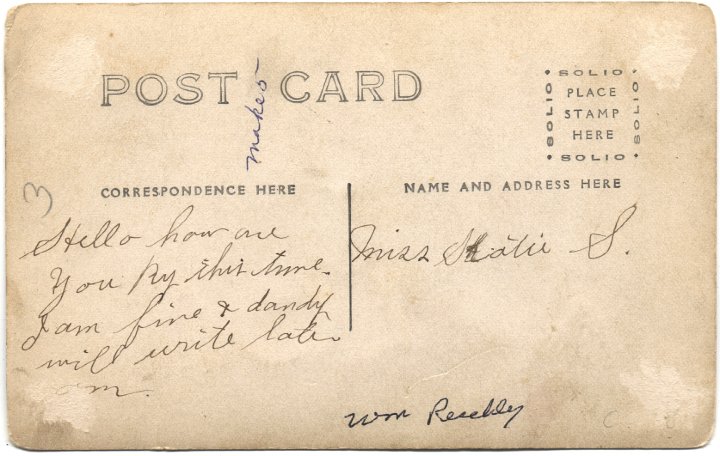 POST CARD
make 5
SOLIO
SOLIO PLACE SOLIO
STAMP
HERE
SOLIO
CORRESPONDENCE HERE
NAME AND ADDRESS HERE
3
Hello how are
You by this time.
I am fine & dandy
will write later
Miss Katie S.
Wm